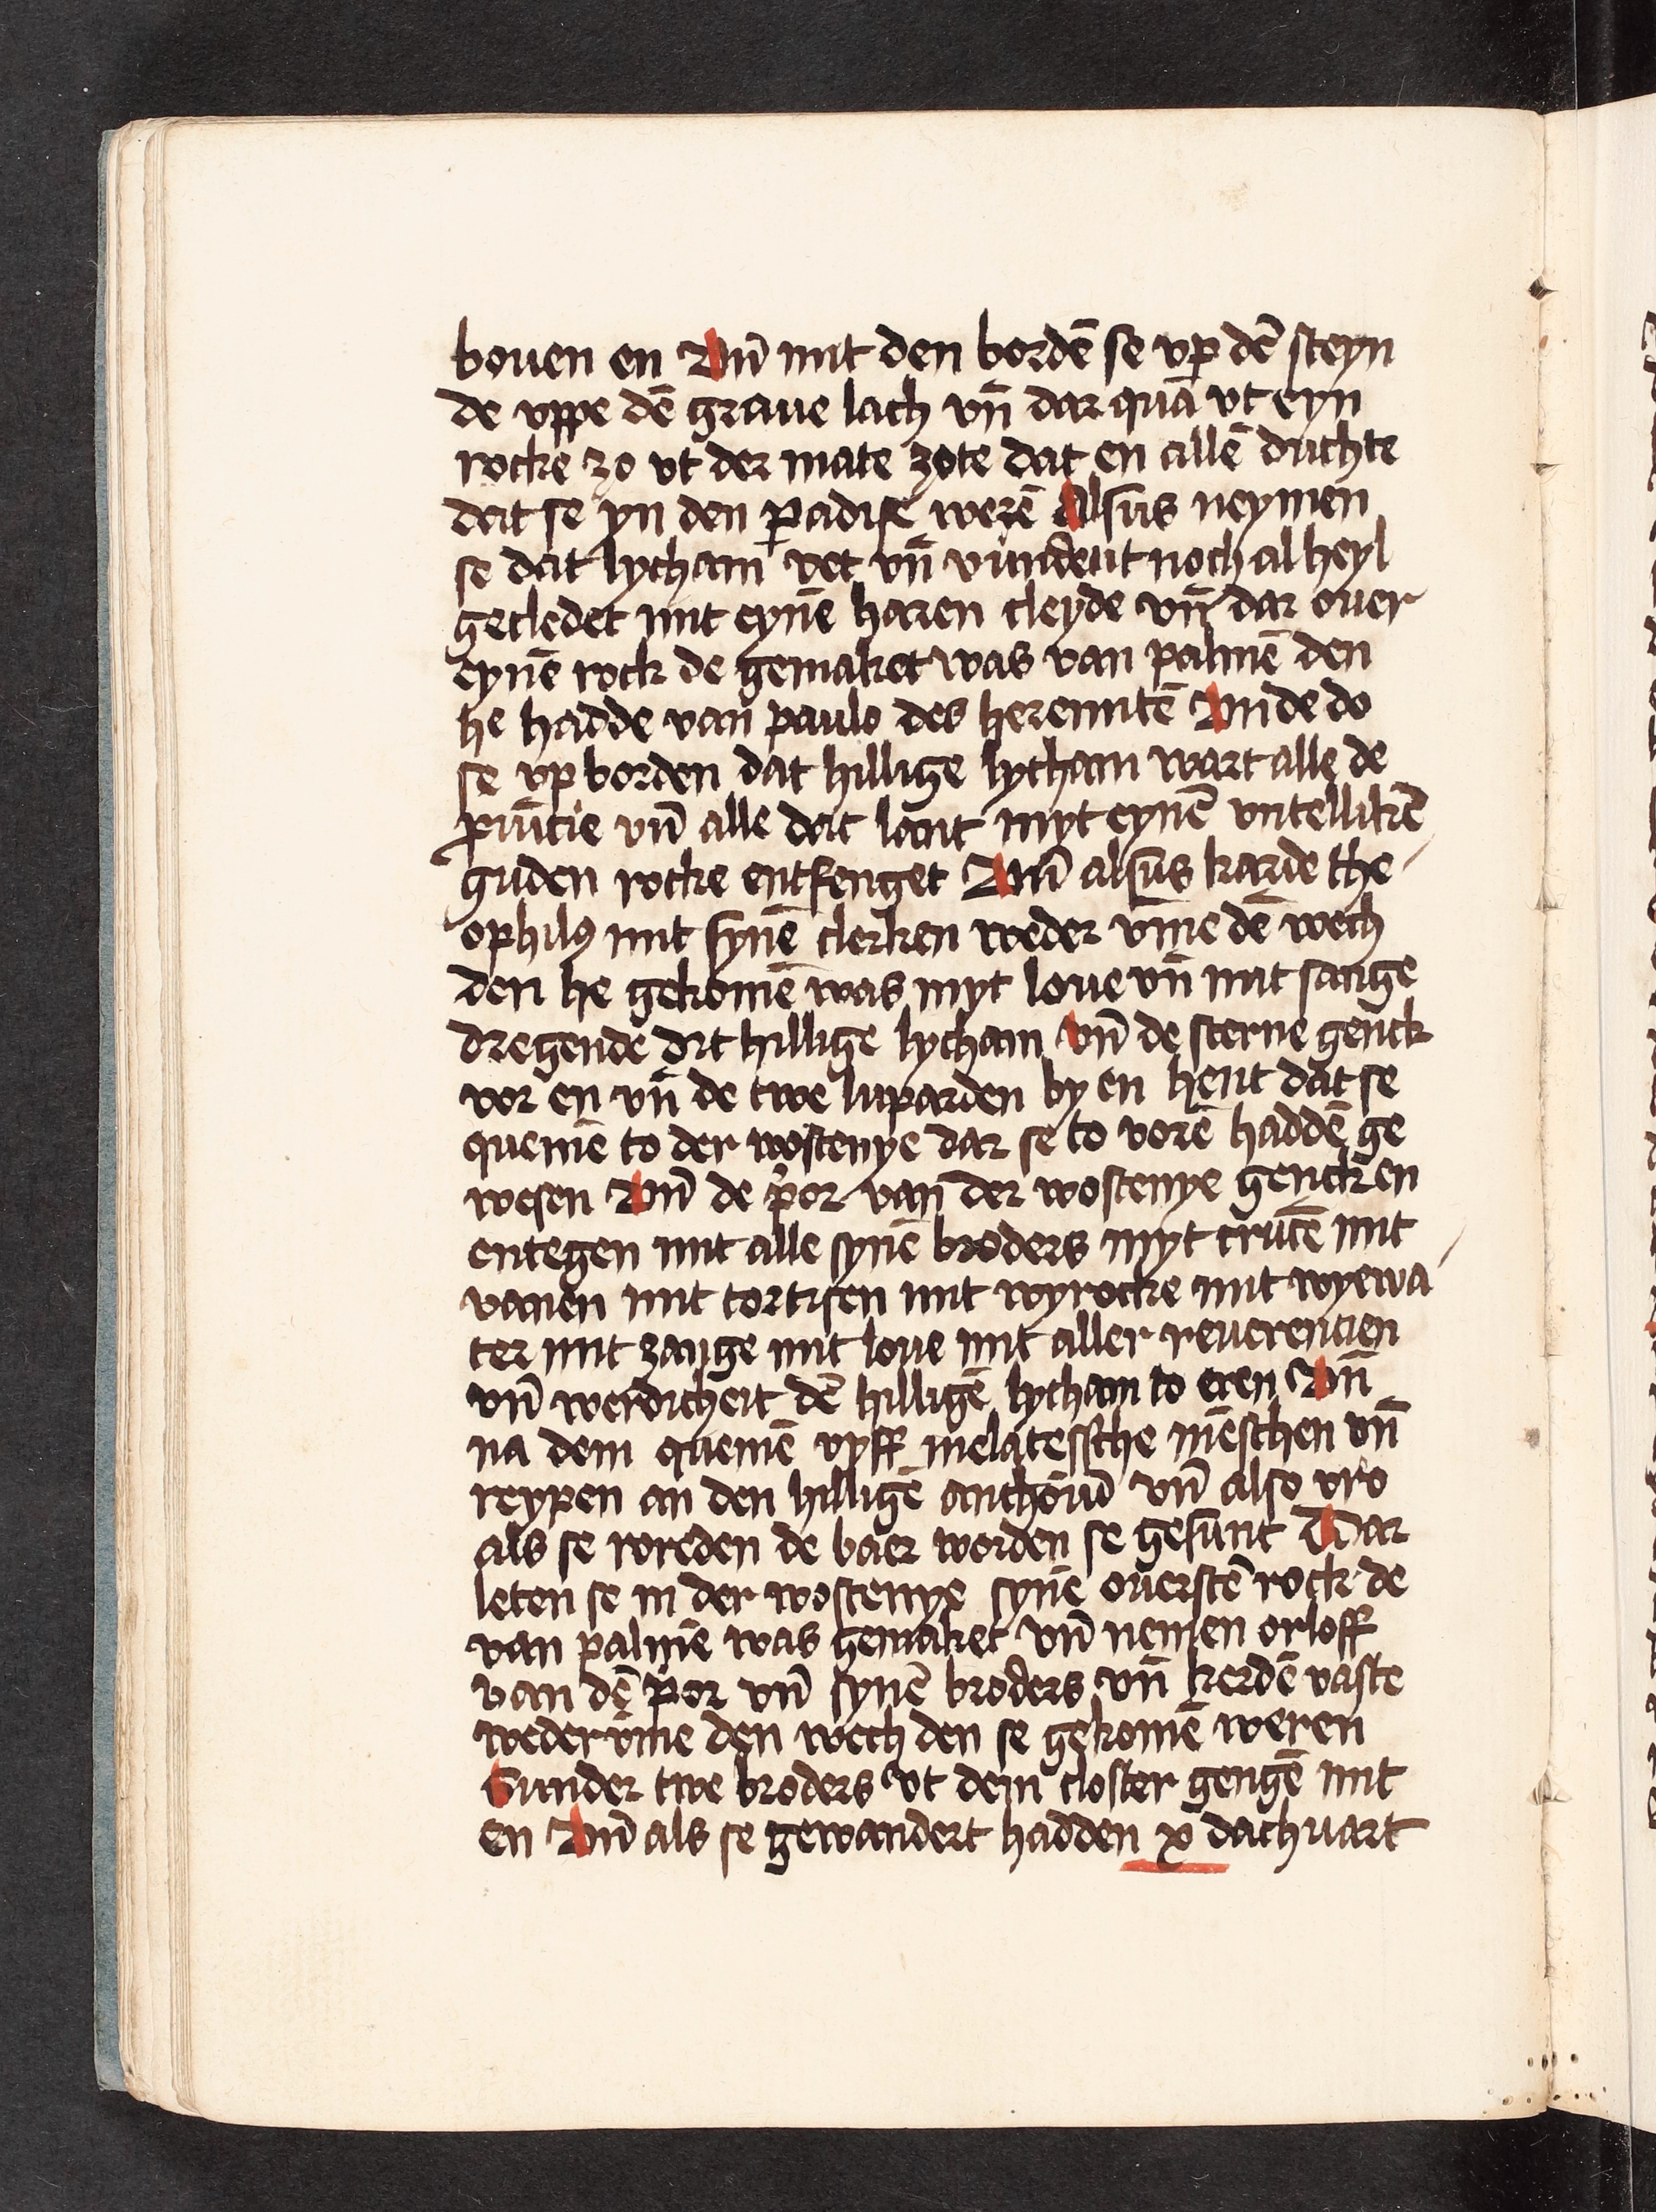 bouen en Vn̄ mit den bordē se vp dē steyn
de vppe dē graue lach vn̄ dar quā vt eyn
rocke zo vt der mate zote dat en allē duchte
dat se yn den ꝑadise werē Alsus neymen
se dat lycham vet vn̄ vundent noch al heyl
gecledet mit eynē haren cleyde vn̄ dar ouer
eynē rock de gemaket was van palmē den
he hadde van paulo des heremitē Vnde do
se vp borden dat hillige lycham wart alle de
ꝓuīcie vn̄ alle dat lant myt eynē vntellikē
guden rocke entfenget Vn̄ alsus karde the
ophilꝯ mit synē clerken weder vm̄e dē wech
den he gekomē was myt loue vn̄ mit sange
dregende dit hillige lycham Vn̄ de sterne genck
vor en vn̄ de twe luparden by en hent dat se
quemē to der wostenye dar se to vorē haddē ge
wesen Vn̄ de p̓or van der wostenye genck en
entegen mit alle synē broders myt crucē mit
vanen mit tortisen mit wyrocke mit wyewa
ter mit zange mit loue mit aller reuerencien
vn̄ werdicheit dē hilligē lycham to eren Vn̄
na dem quemē vyff melatessche mēschen vn̄
reypen an den hilligē anthoniū vn̄ also vro
als se roreden de baer worden se gesunt Dar
leten se in der wostenye synē ouerstē rock de
van palmē was gemaket vn̄ nemen orloff
van dē p̓or vn̄ synē broders vn̄ kerdē vaste
weder vm̄e den wech den se gekomē weren
Sunder twe broders vt dem closter gengē mit
en Vn̄ als se gewandert hadden x dachuart